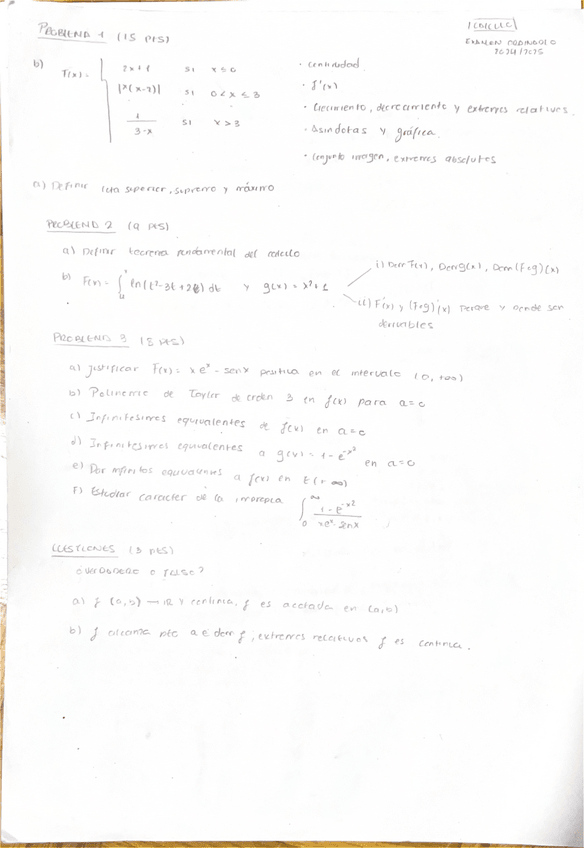 PROBLEMA 1 (15 PTS)
CÁLCULO
EXAMEN
2024/2025
b) f(x) = { 2x+1 si x ≤ 0
|x(x-2)| si 0 < x ≤ 3
1/(3-x) si x > 3
· continuidad.
· f'(x)
· Crecimiento, decrecimiento y extremos relativos.
· Asíndotas y gráfica.
· Conjunto imagen, extremos absolutos
a) Definir cota superior, supremo y máximo
PROBLEMA 2 (9 PTS)
a) Definir teorema fundamental del cálculo
b) F(x) = ∫ ln(t²-3t+2) dt y g(x) = x²+1
i) Dom F(x), Dom g(x), Dom (F∘g)(x)
ii) F'(x) y (F∘g)'(x) Porque y donde son
derivables
PROBLEMA 3 (PTS)
a) Justificar f(x) = x eˣ - senx positiva en el intervalo (0, +∞)
b) Polinomio de Taylor de orden 3 en f(x) para a=0
c) Infinitésimos equivalentes de f(x) en a=0
d) Infinitésimos equivalentes a g(x) = 1 - e^-x² en a=0
e) Dar infinitos equivalentes a f(x) en (+∞)
f) Estudiar caracter de la impropia ∫₀^∞ (1-e^-x²)/(xeˣ-senx)
CUESTIONES (3 PTS)
¿VERDADERO O FALSO?
a) f (a,b) → ℝ y continua, f es acotada en (a,b)
b) f alcanza pto a ∈ dom f, extremos relativos f es continua.